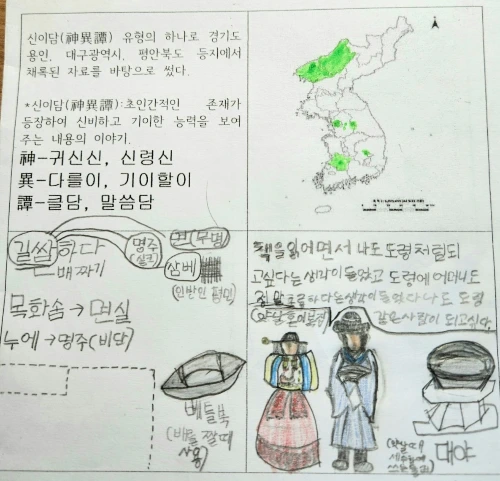 신이담(神異譚) 유형의 하나로 경기도
용인, 대구광역시, 평안북도 등지에서
채록된 자료를 바탕으로 썼다.
*신이담(神異譚):초인간적인 존재가
등장하여 신비하고 기이한 능력을 보여
주는 내용의 이야기.
神-귀신신, 신령신
異-다를이, 기이할이
譚-클담, 말씀담
길쌈하다
베짜기
명주
(실크)
면(무명)
삼베
목화솜→면실
누에→명주(비단)
베틀북
(베를 짤때
사용)
책을 읽으면서 나도 도령처럼 되
고싶다는 생각이 들었고 도령에 어머니도
정말 초로하다는 생각이 들었다 나도 도령
같은 사람이 되고싶다.
대야